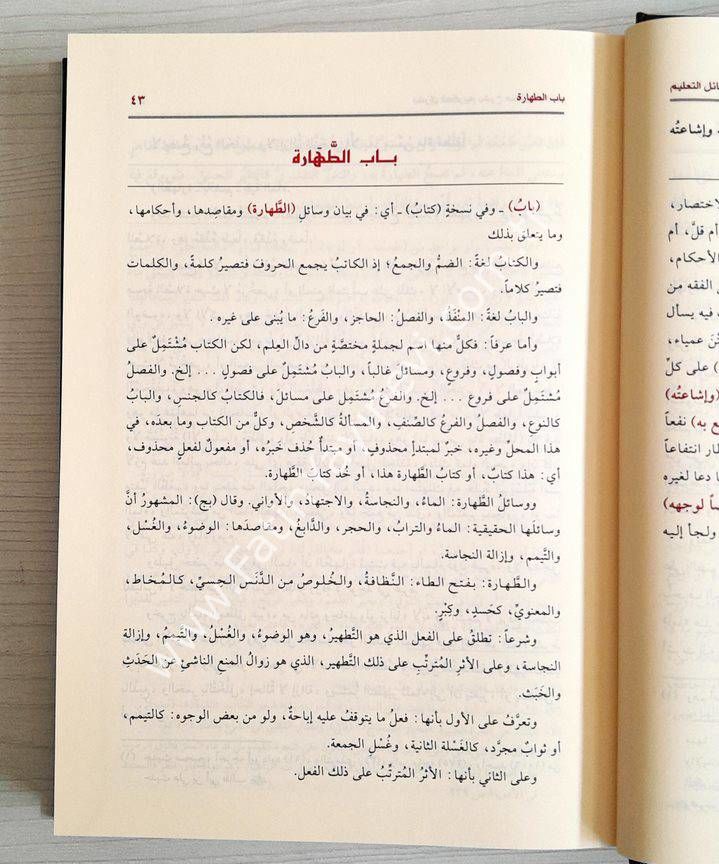 باب الطهارة
٤٣
بــاب الطَّهَارة
(بابُ) ـ وفي نسخةٍ (كتابُ) ـ أي: في بيان وسائلِ (الطَّهارة) ومقاصدِها، وأحكامِها،
وما يتعلق بذلك
والكتابُ لغةً: الضمُّ والجمعُ؛ إذ الكاتبُ يجمع الحروفَ فتصيرُ كلمةً، والكلمات
فتصيرُ كلاماً.
والبابُ لغةً: المنْفَذُ، والفصلُ: الحاجز، والفَرعُ: ما يُبنى على غيره.
وأما عرفاً: فكلٌّ منها اسم لجملةٍ مختصَّةٍ من دالِّ العِلم، لكن الكتاب مُشْتَمِلٌ على
أبوابٍ وفصولٍ، وفروعٍ، ومسائلَ غالباً، والبابُ مُشْتَمِلٌ على فصولٍ ... إلخ. والفصلُ
مُشْتَمِلٌ على فروع ... إلخ. والفرعُ مُشْتَمِل على مسائلَ، فالكتابُ كالجنسِ، والبابُ
كالنوعِ، والفصلُ والفرعُ كالصِّنفِ، والمسألةُ كالشَّخص، وكلٌّ من الكتاب وما بعدَه، في
هذا المحلِّ وغيرِه، خبرٌ لمبتدإٍ محذوفٍ، أو مبتدأٌ حُذف خَبرُه، أو مفعولٌ لفعلٍ محذوف،
أي: هذا كتابُ، أو كتابُ الطَّهارة هذا، أو خُذ كتابَ الطَّهارة.
ووسائلُ الطَّهارة: الماءُ، والنجاسةُ، والاجتهادُ، والأواني. وقال (بج): المشهورُ أنَّ
وسائلَها الحقيقية: الماءُ والترابُ، والحجر، والدَّابغُ، ومقاصدَها: الوضوءُ، والغُسْل،
والتَّيمم، وإزالة النجاسة.
والطَّهارة: بفتح الطاء: النَّظافةُ، والخُلوصُ من الدَّنَس الحِسيِّ، كالمُخاط،
والمعنويِّ، كحَسدٍ، وكِبْرٍ.
وشرعاً: تطلقُ على الفعل الذي هو التَّطهير، وهو الوضوءُ، والغُسْلُ، والتَّيممُ، وإزالة
النجاسة، وعلى الأثرِ المُترتِّبِ على ذلك التَّطهير، الذي هو زوالُ المنعِ الناشئ عن الحَدَثِ
والخَبَث.
وتعرَّفُ على الأول بأنها: فعلُ ما يتوقفُ عليه إباحةٌ، ولو من بعض الوجوه: كالتيمم،
أو ثوابٌ مجرَّد، كالغَسْلة الثانية، وغُسْلِ الجمعة.
وعلى الثاني بأنها: الأثرُ المُترتِّبُ على ذلك الفعل.
ائل التعليم
وإشاعتُه
لاختصار،
أم قلَّ، أم
الأحكام،
الفقه من
فيه يسأل
عمياء،
) على كلِّ
(وإشاعتُه)
ع به) نفعاً
انتفاعاً
دعا لغيره
لوجهه)
ولجأ إليه